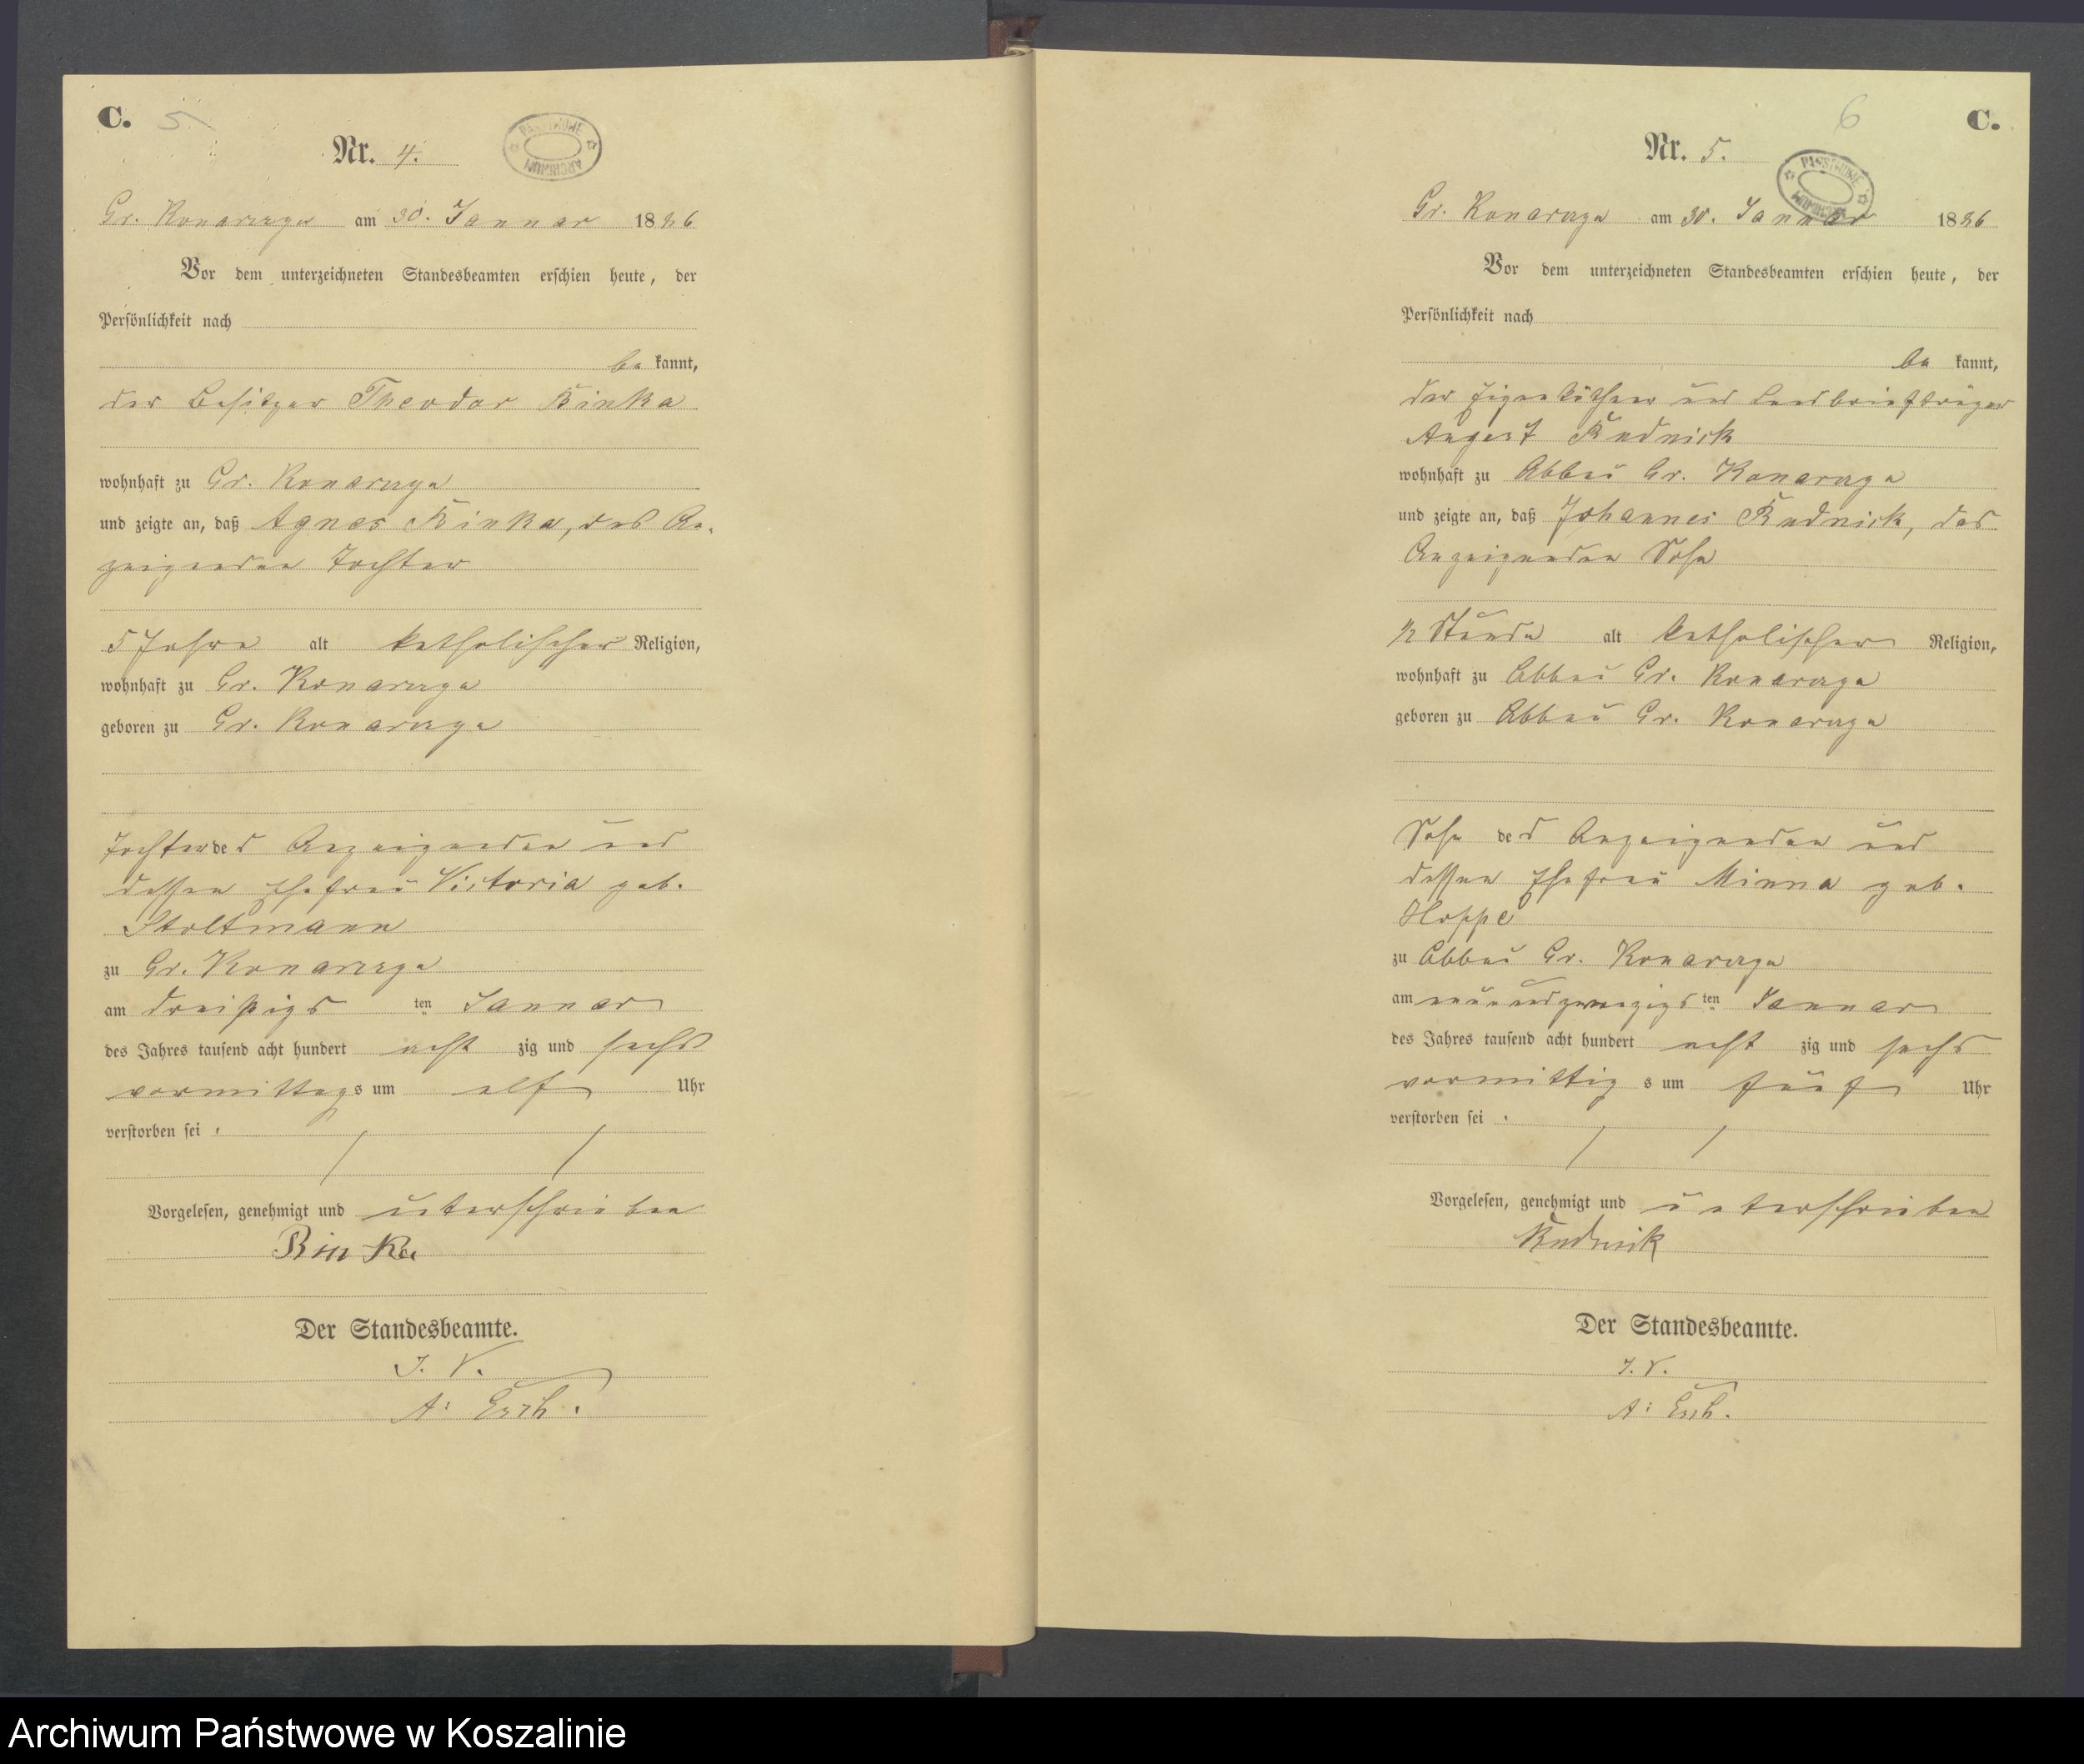 C. 5
Nr. 4.
PAŃSTWOWE
ARCHIWUM
Gr. Konarczyn am 30. Januar 1886
Vor dem unterzeichneten Standesbeamten erschien heute, der
Persönlichkeit nach
be kannt,
der Besitzer Theodor Binka
wohnhaft zu Gr. Konarczyn
und zeigte an, daß Agnes Binka, des An-
zeigenden Tochter
5 Jahre alt katholischer Religion,
wohnhaft zu Gr. Konarczyn
geboren zu Gr. Konarczyn
Tochter des Anzeigenden und
dessen Ehefrau Victoria geb.
Stoltmann
zu Gr. Konarczyn
am dreißigs ten Januar
des Jahres tausend acht hundert acht zig und sechs
vormittags um elf Uhr
verstorben sei.
Vorgelesen, genehmigt und unterschrieben
Binka
Der Standesbeamte.
I. V.
A:
6 C.
Nr. 5.
PAŃSTWOWE
ARCHIWUM
Gr. Konarczyn am 30. Januar 1886
Vor dem unterzeichneten Standesbeamten erschien heute, der
Persönlichkeit nach
be kannt,
der Eigenkäthner und Landbriefträger
August Rudnick
wohnhaft zu Abbau Gr. Konarczyn
und zeigte an, daß Johannes Rudnick, des
Anzeigenden Sohn
1/2 Stunde alt katholischer Religion,
wohnhaft zu Abbau Gr. Konarczyn
geboren zu Abbau Gr. Konarczyn
Sohn des Anzeigenden und
dessen Ehefrau Minna geb.
Hoppe
zu Abbau Gr. Konarczyn
am neunundzwanzigs ten Januar
des Jahres tausend acht hundert acht zig und sechs
vormittag s um fünf Uhr
verstorben sei.
Vorgelesen, genehmigt und unterschrieben
Rudnick
Der Standesbeamte.
I. V.
A:
Archiwum Państwowe w Koszalinie